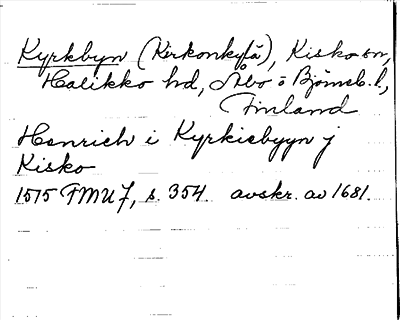 Kyrkbyn (Kirkonkylä), Kisko sn,
Halikko hd, Åbo o Björneb. l,
Finland
Henrich i Kyrkiebyyn j
Kisko
1515 FMU 7, s. 354. avskr. av 1681.